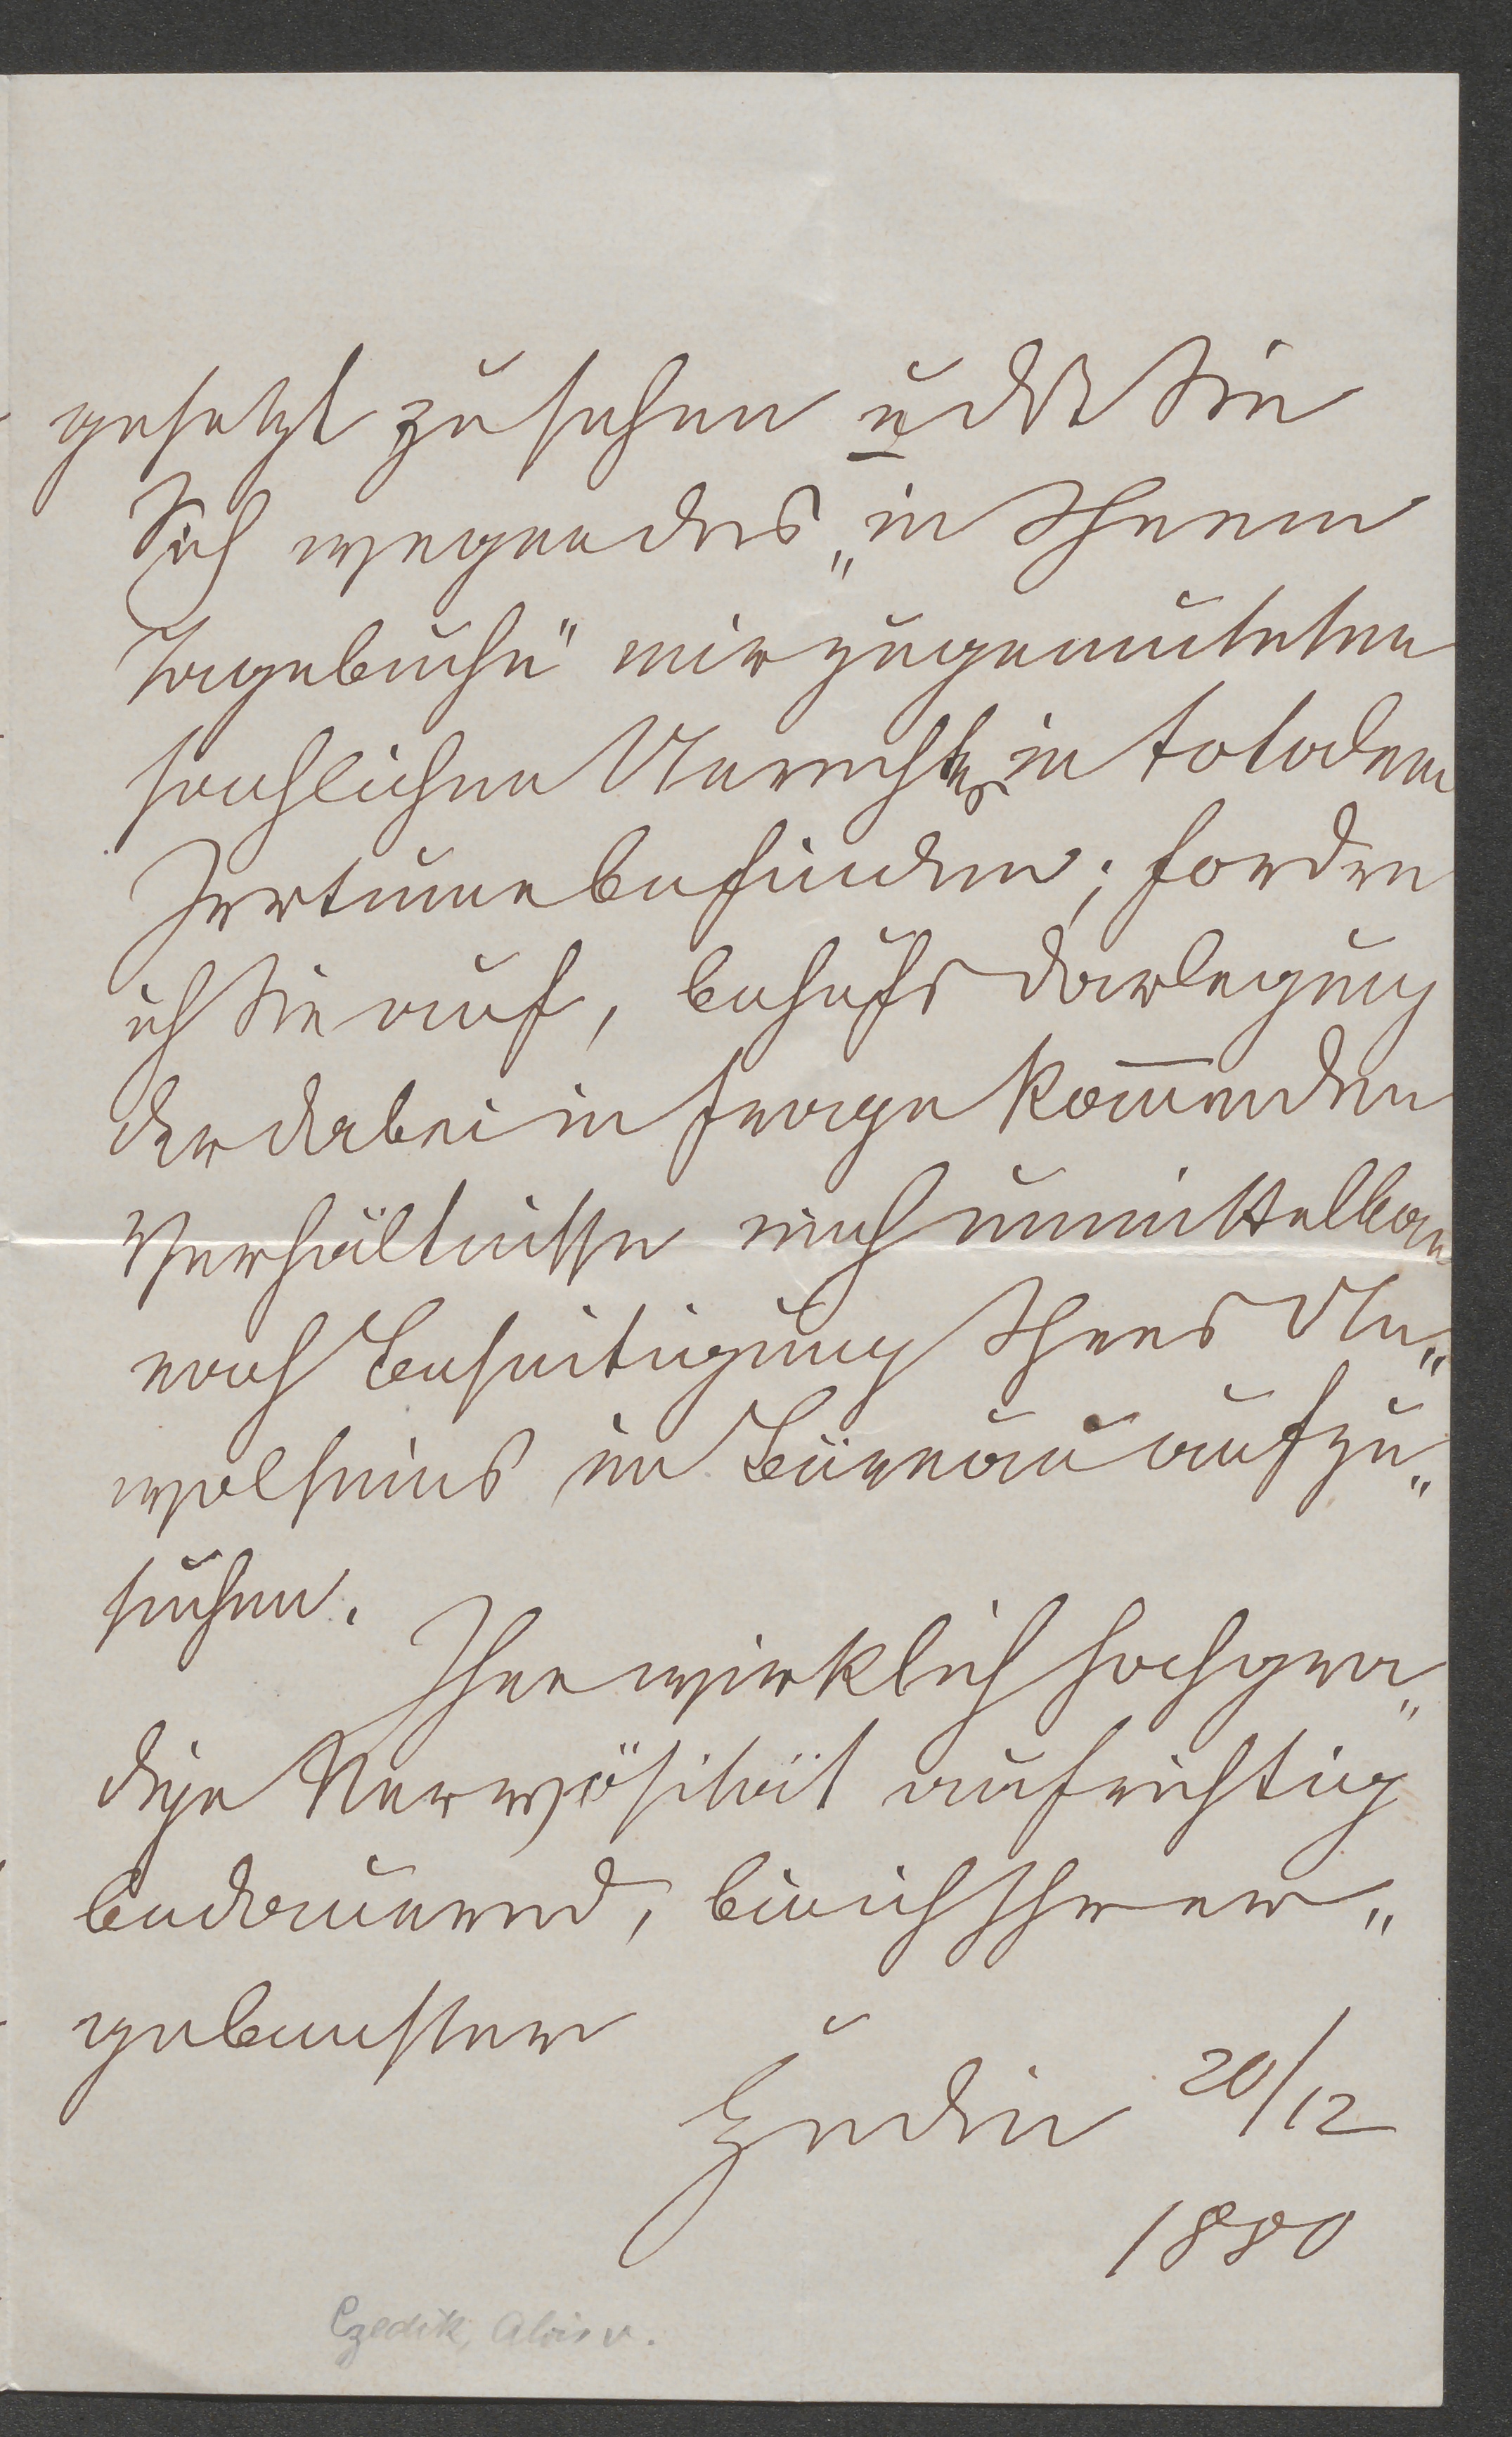 gesetzt zu sehen u dß Sie
Sich wegen des „in Ihrem
Tagebuche" mir zugemuteten
sachlichen Unrechtes in totalem
Irrtume befinden; fordere
ich Sie auf, behufs Darlegung
der dabei in Frage kom̅enden
Verhältnisse mich unmittelbar
nach Beseitigung Ihres Un„
wolseins im Bureau aufzu„
suchen.
Ihre wirklich hochgra„
dige Nervösität aufrichtig
bedauernd, bin ich Ihr er„
gebenster
20/12
1880
Czedik, Alois v.